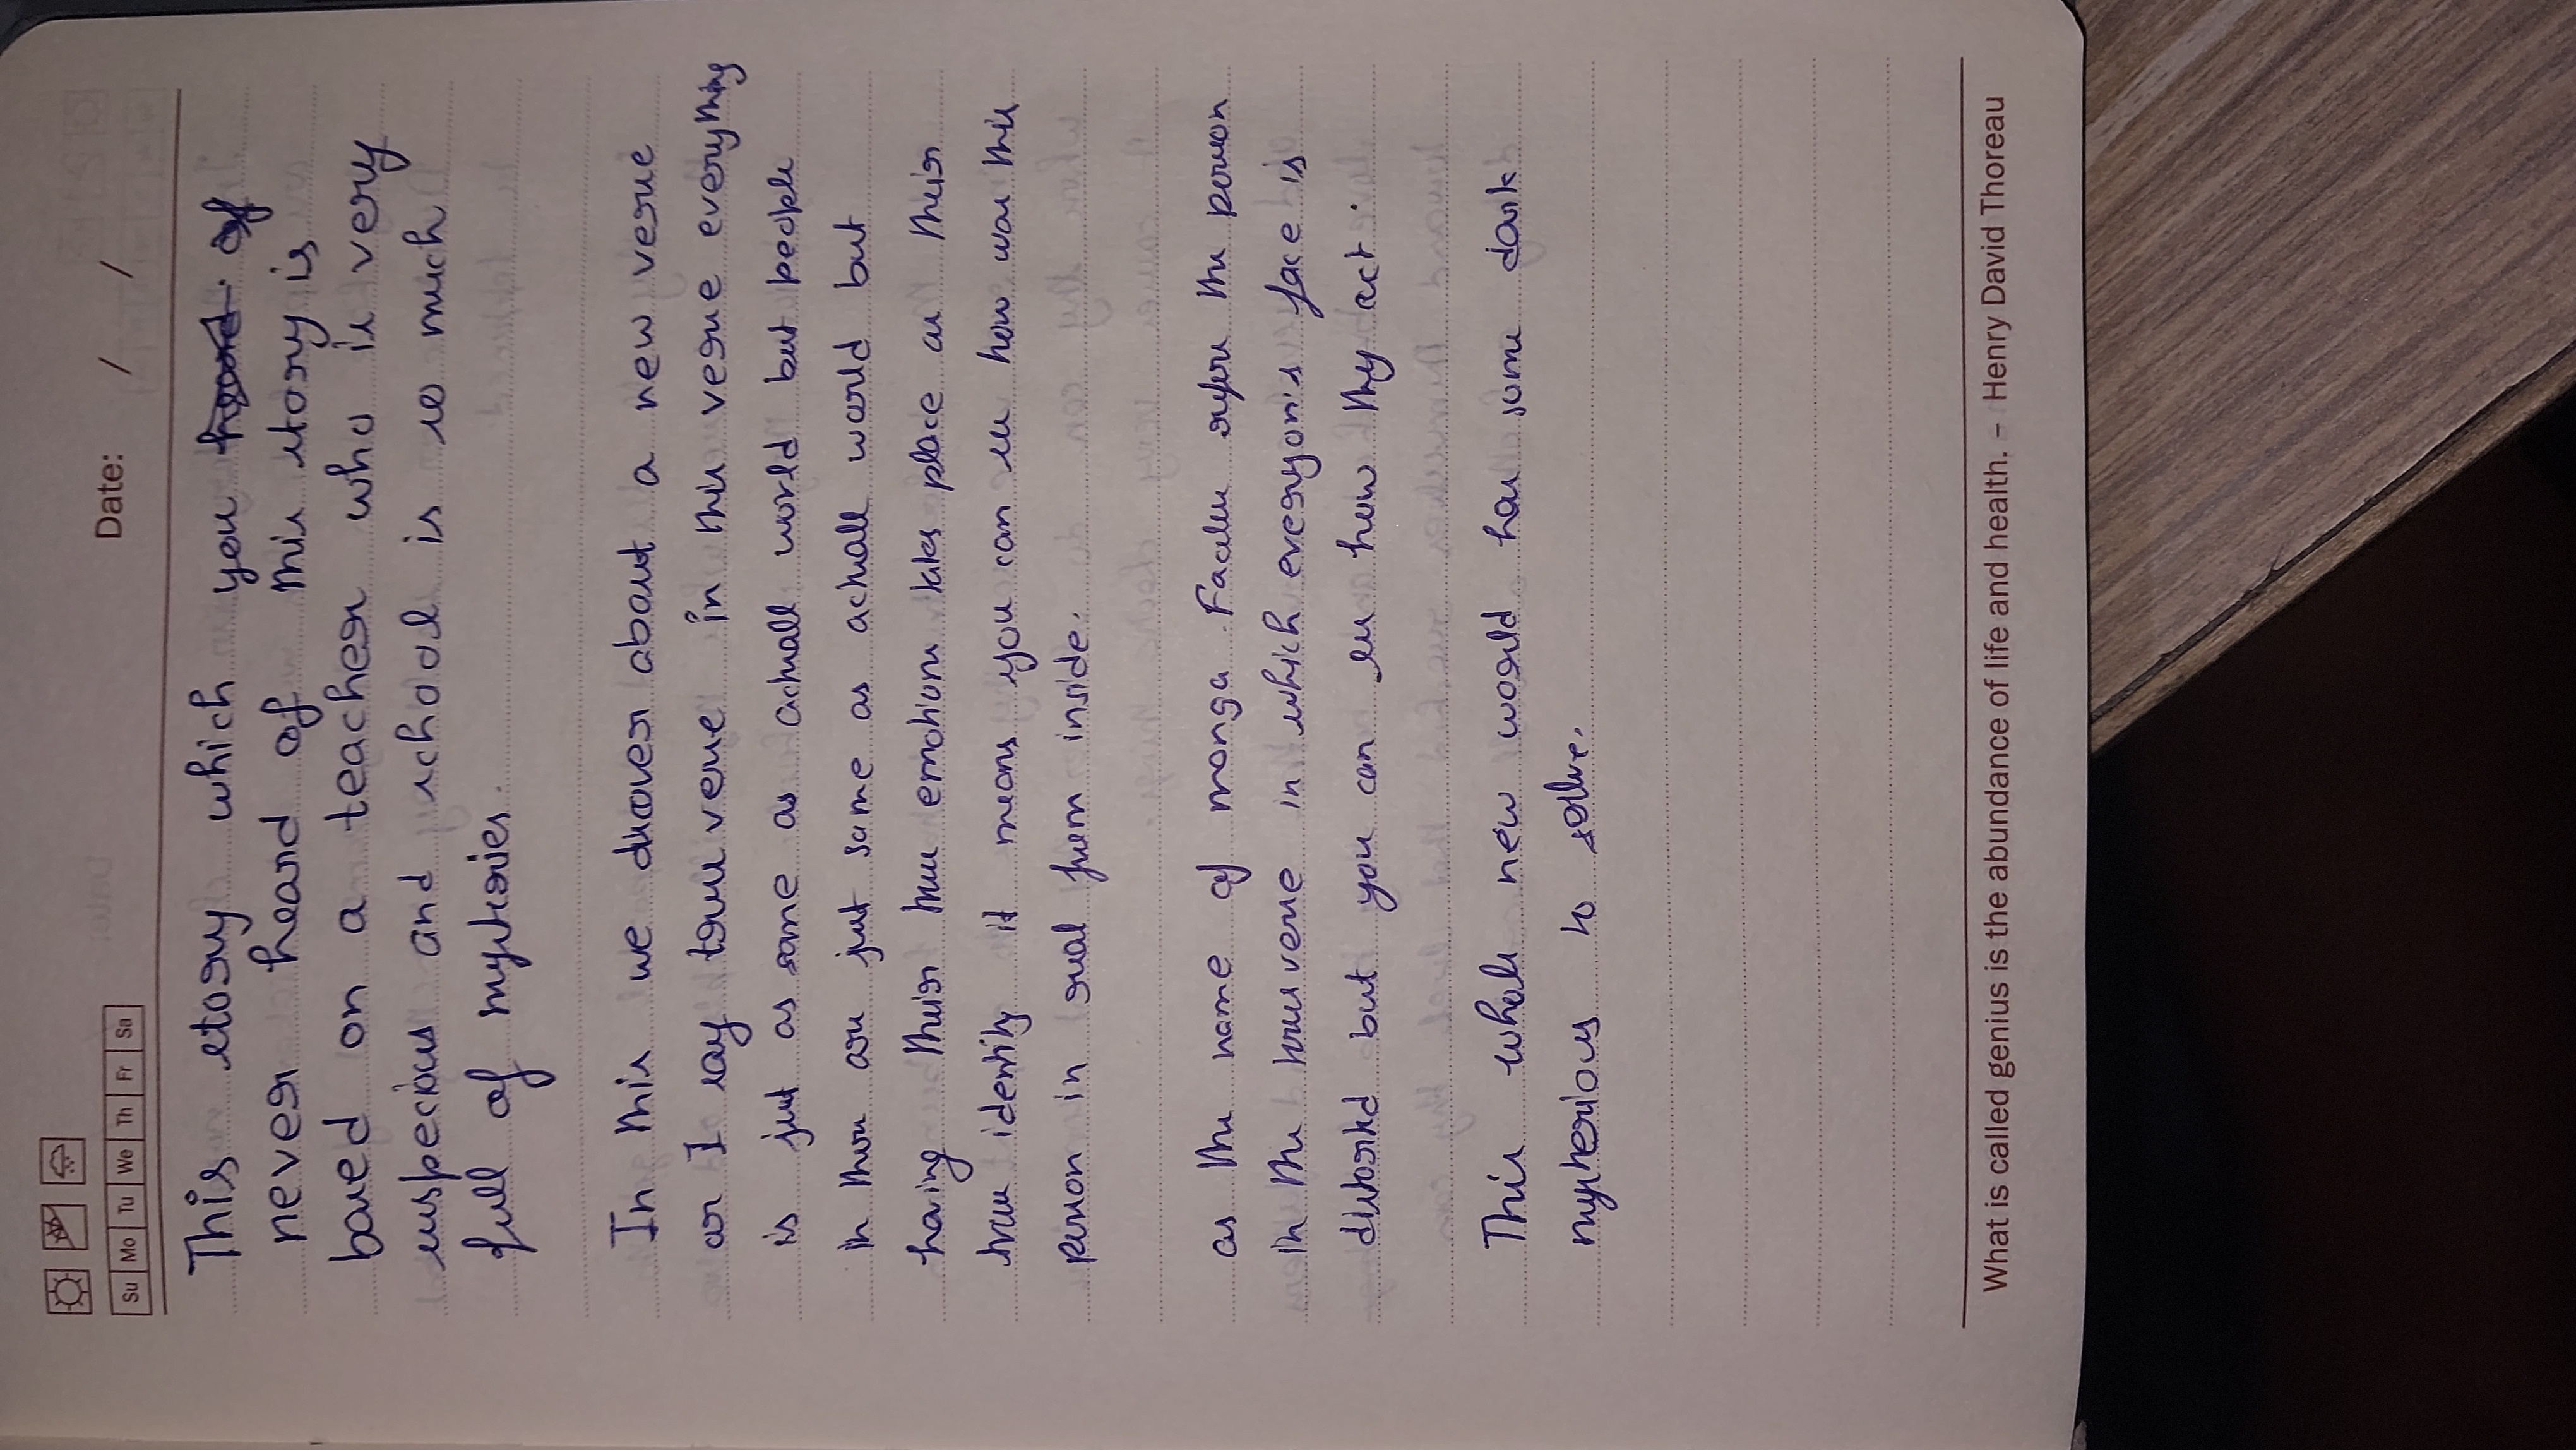 Su Mo Tu We Th Fr Sa
Date: / /
This story which you heard of
never heard of this story is
based on a teacher who is very
suspecious and school is so much
full of mysteries.
In this we dicover about a new verse
or I say trueverse in this verse everything
is just as same as actuall world but people
in there are just same as actuall world but
having their true emotions takes place as their
true identity it means you can see how was this
person in real from inside.
as the name of manga Faceless refers the person
in the trueverse in which everyon's face is
distorted but you can see how they act.
This whole new world has some dark
mystherious to solve.
What is called genius is the abundance of life and health. – Henry David Thoreau